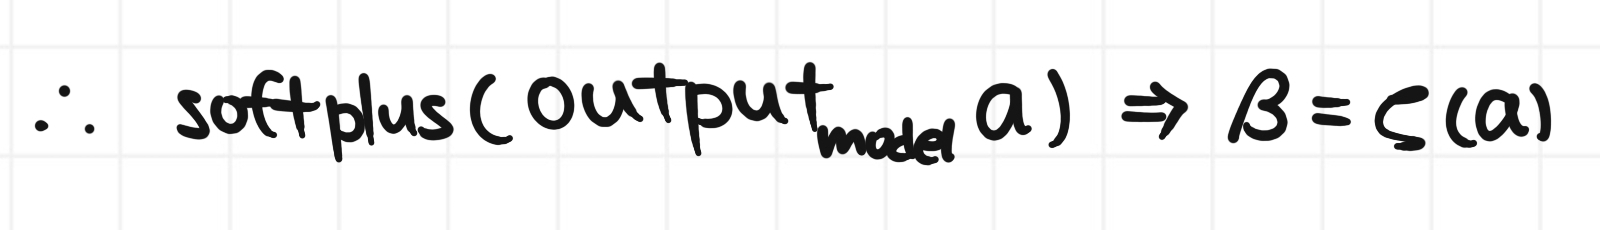 ∴ softplus(output_model a) ⇒ β = ζ(a)